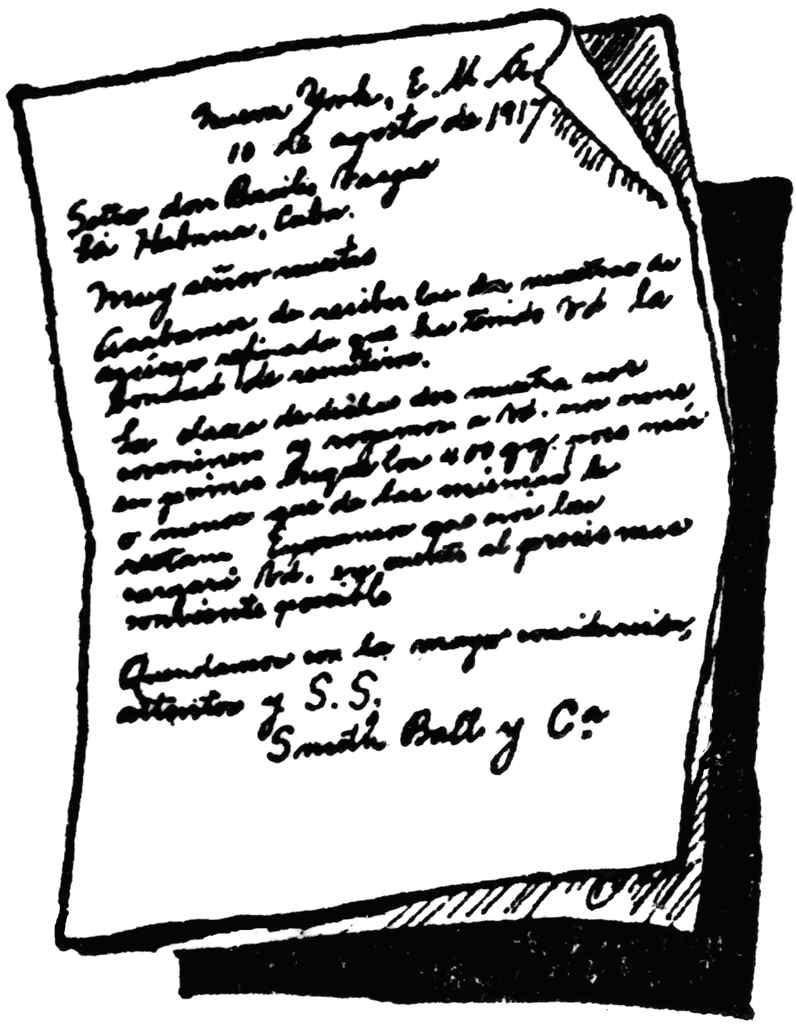 Nueva York, E. U. A.
10 de agosto de 1917
Señor don Basilio Vargas
La Habana, Cuba.
Muy señor nuestro
Acabamos de recibir las dos muestras de
azúcar refinada que ha tenido Vd la
bondad de remitirnos.
La clase de dichas dos muestra nos
conviene y rogamos a Vd. nos
en primer los 400 qq. poco más
o menos que de las mismas le
restan. Esperamos que nos las
cargará Vd. en cuenta al precio mas
conviente posible
Quendamos con la mayor consideración,
attentos y S. S.
Smith Ball y Cª